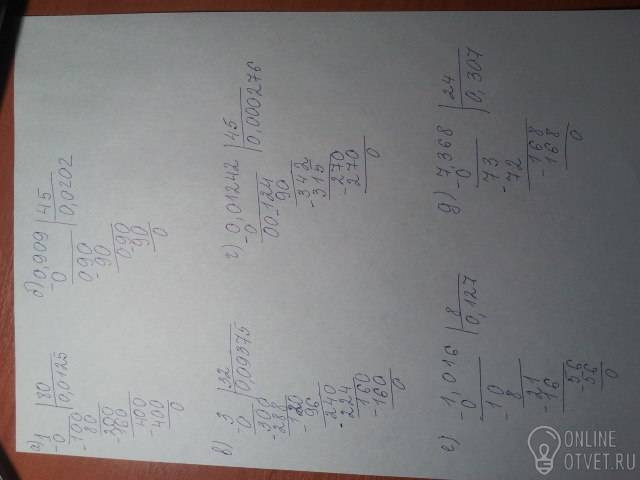 а) 1 | 80
-0 | 0,0125
-100
80
-200
160
-400
-400
0
б) 0,909 | 45
-0 | 0,0202
090
-90
090
-90
0
в) 3 | 32
-0 | 0,09375
-300
-288
-120
96
-240
-224
160
-160
0
г) 0,01242 | 45
-0 | 0,000276
00124
-90
342
-315
270
-270
0
е) 1,016 | 8
-0 | 0,127
-10
8
-21
-16
-56
-56
0
д) 7,368 | 24
-0 | 0,307
73
-72
168
-168
0
ONLINE
OTVET.RU